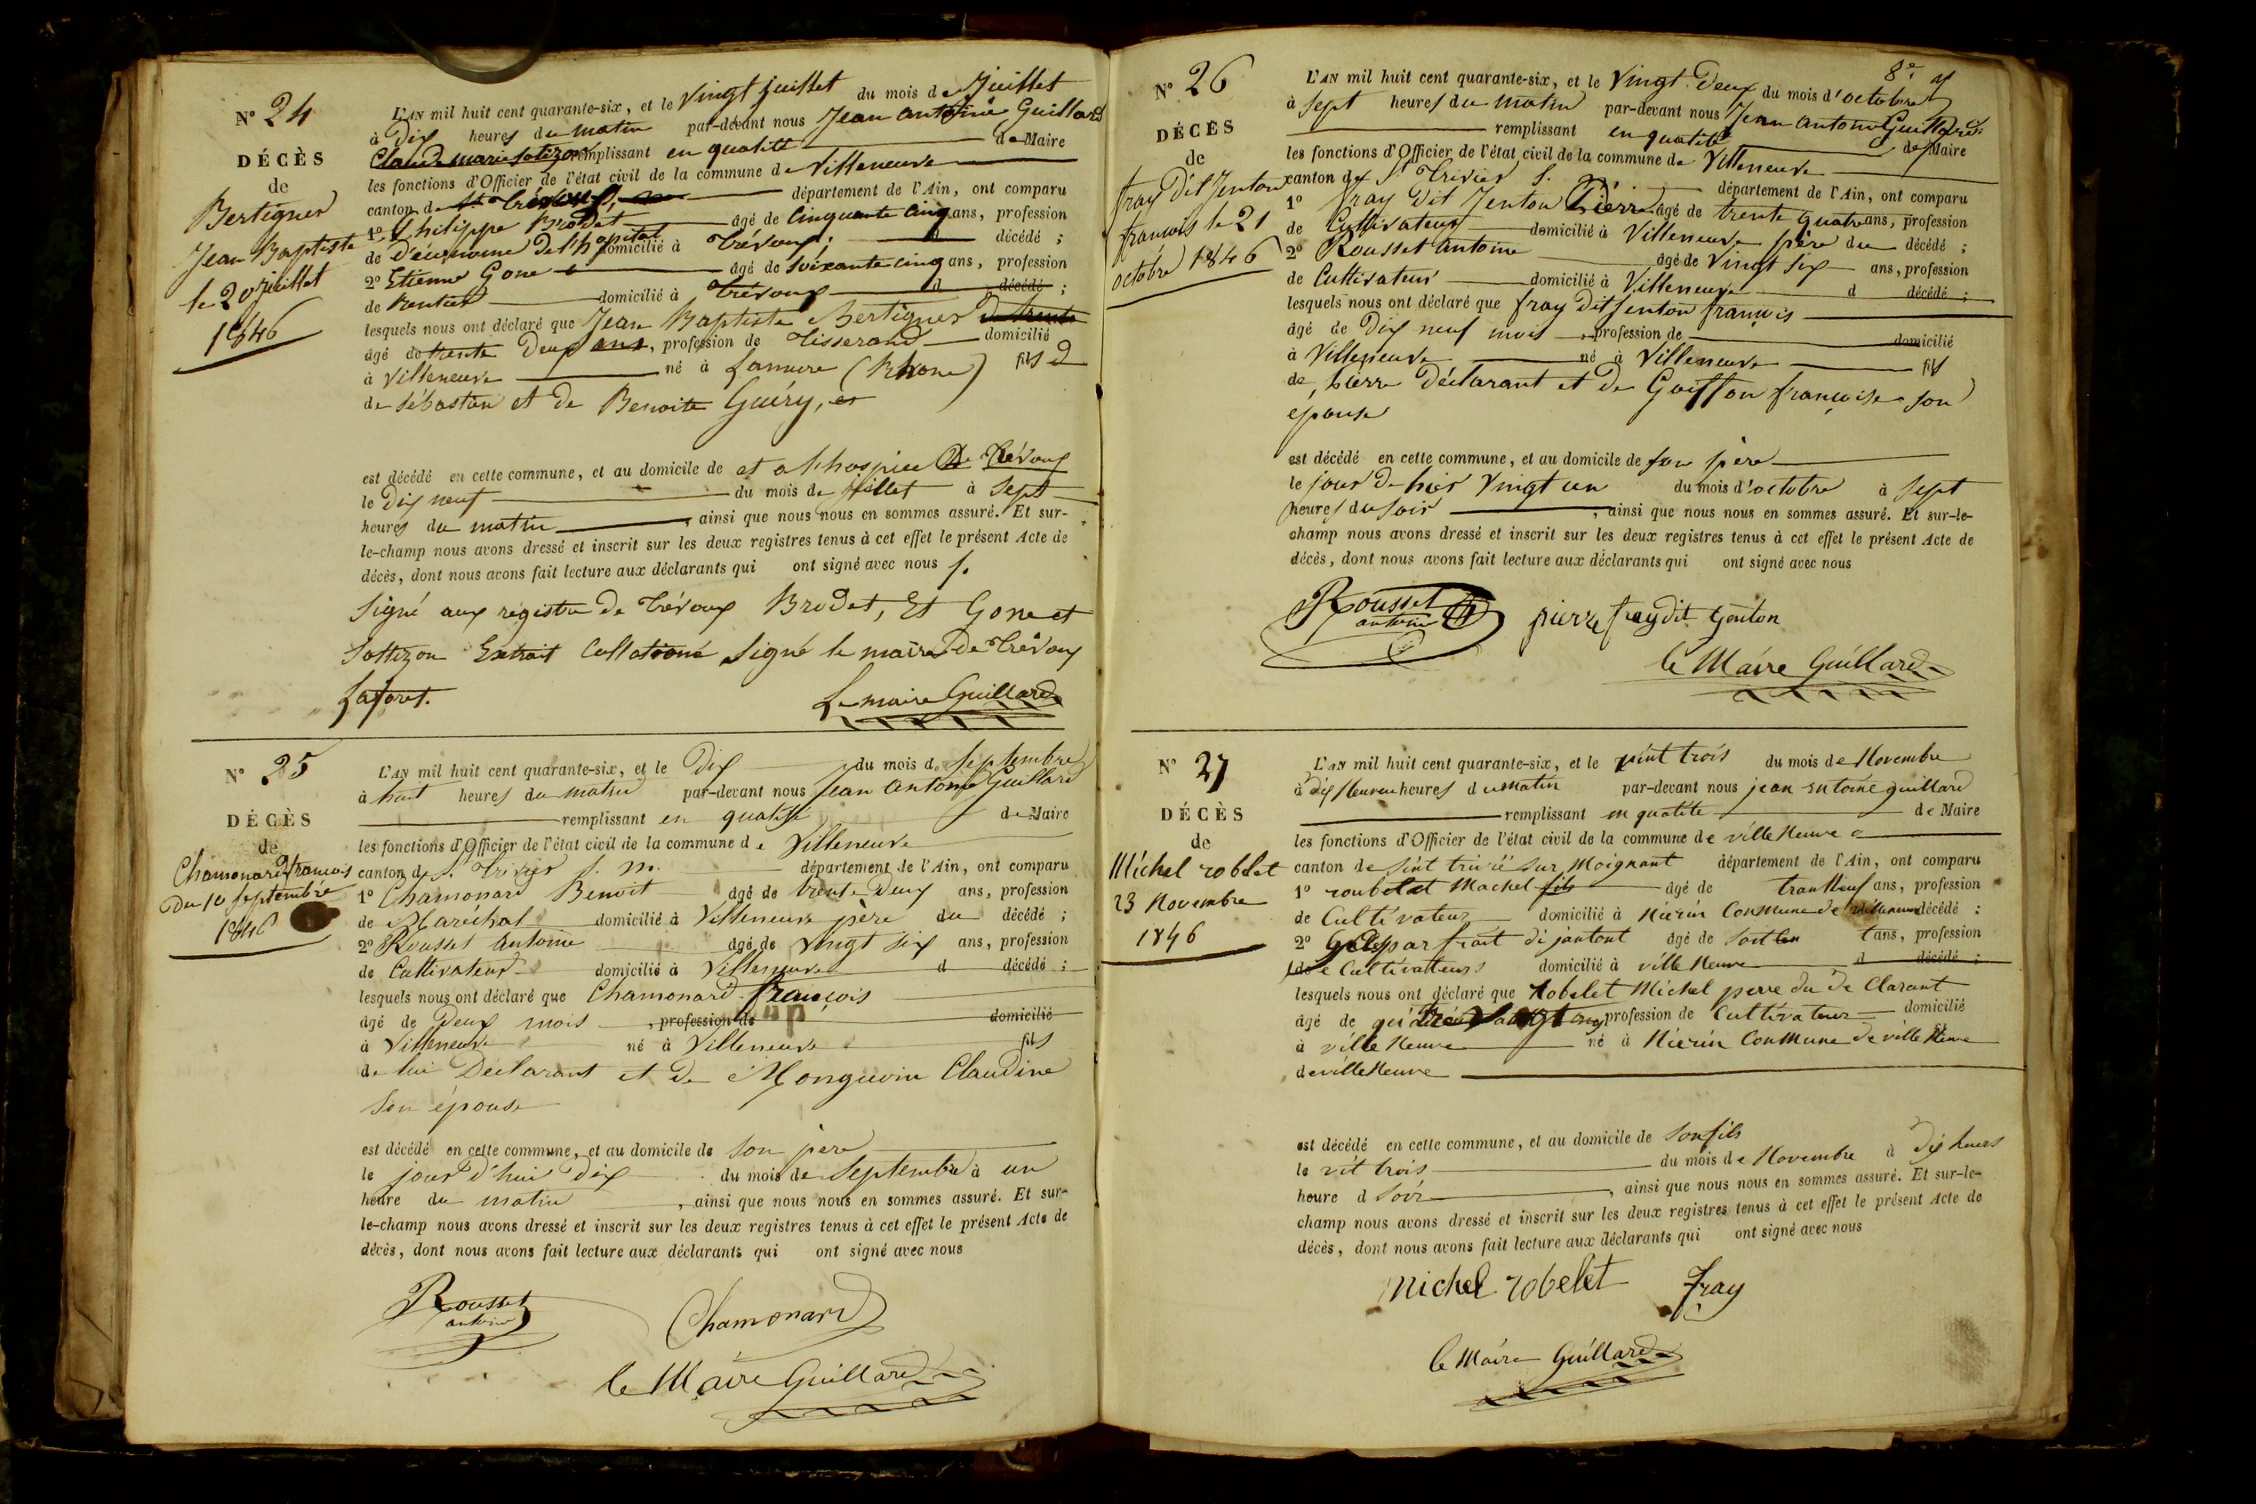 N° 24
DÉCÈS
de
Bertigner
Jean Baptiste
le 20 juillet
1846
L'AN mil huit cent quarante-six, et le Vingt juillet du mois de Juillet
à Dix heures du matin par-devant nous Jean antoine Guillard
Claude marie Sotizon remplissant en qualité de Maire
les fonctions d'Officier de l'état civil de la commune de Villeneuve
canton de St Trivier département de l'Ain, ont comparu
1° Philippe Brodet âgé de Cinquante Cinq ans, profession
de d'économe de l'hopital domicilié à Trévoux; d décédé ;
2° Etienne Gone âgé de soixante cinq ans, profession
de Rentier domicilié à Trévoux d décédé ;
lesquels nous ont déclaré que Jean Baptiste Bertigner de trente
âgé de trente Deux ans, profession de Tisserand domicilié
à Villeneuve né à Lamure (Rhone) fils d
de Sébastien et de Benoite Guéry, et
est décédé en cette commune, et au domicile de et a l'hospice De Trévoux
le Dix neuf du mois de juillet à Sept
heures du matin, ainsi que nous nous en sommes assuré. Et sur-
le-champ nous avons dressé et inscrit sur les deux registres tenus à cet effet le présent Acte de
décès, dont nous avons fait lecture aux déclarants qui ont signé avec nous f.
Signé aux régistre de Trévoux Brodet, Et Gone et
Sottizon Extrait Collationé Signé le maire De Trévoux
Laforet. Le maire Guillard
N° 25
DÉCÈS
de
Chamonard francois
Du 10 septembre
1846
L'AN mil huit cent quarante-six, et le Dix du mois de Septembre
à huit heures du matin par-devant nous Jean antoine Guillard
remplissant en qualité de Maire
les fonctions d'Officier de l'état civil de la commune de Villeneuve
canton de St Trivier s. m. département de l'Ain, ont comparu
1° Chamonard Benoit âgé de trente Deux ans, profession
de Maréchal domicilié à Villeneuve père du décédé ;
2° Rousset Antoine âgé de vingt six ans, profession
de Cultivateur domicilié à Villeneuve d décédé ;
lesquels nous ont déclaré que Chamonard françois
âgé de Deux mois, profession de domicilié
à Villeneuve né à Villeneuve fils
de lui Déclarant et de Monguoin Claudine
Son épouse
est décédé en cette commune, et au domicile de son père
le jour d'hui Dix du mois de Septembre à un
heure du matin, ainsi que nous nous en sommes assuré. Et sur-
le-champ nous avons dressé et inscrit sur les deux registres tenus à cet effet le présent Acte de
décès, dont nous avons fait lecture aux déclarants qui ont signé avec nous
Rousset
antoine
Chamonard
le Maire Guillard
8e
N° 26
DÉCÈS
de
fray Dit Jenton
francois le 21
octobre 1846
L'AN mil huit cent quarante-six, et le Vingt Deux du mois d'octobre
à sept heures du matin par-devant nous Jean Antoine Guillard
remplissant en qualité de Maire
les fonctions d'Officier de l'état civil de la commune de Villeneuve
canton de St Trivier s. département de l'Ain, ont comparu
1° fray Dit Jenton Pierre âgé de trente quatre ans, profession
de Cultivateur domicilié à Villeneuve père du décédé ;
2° Rousset Antoine âgé de Vingt six ans, profession
de Cultivateur domicilié à Villeneuve d décédé ;
lesquels nous ont déclaré que fray Dit Jenton françois
âgé de Dix neuf mois, profession de domicilié
à Villeneuve né à Villeneuve fils
de Pierre Déclarant et de Goiffon françoise son
epouse
est décédé en cette commune, et au domicile de son père
le jour D'hier Vingt un du mois d'octobre à Sept
heures du Soir, ainsi que nous nous en sommes assuré. Et sur-le-
champ nous avons dressé et inscrit sur les deux registres tenus à cet effet le présent Acte de
décès, dont nous avons fait lecture aux déclarants qui ont signé avec nous
Rousset
antoine
pierre fraydit Genton
le Maire Guillard
N° 27
DÉCÈS
de
Michel roblet
23 Novembre
1846
L'AN mil huit cent quarante-six, et le vint trois du mois de Novembre
à dix heures du matin par-devant nous jean entoine guillard
remplissant en qualité de Maire
les fonctions d'Officier de l'état civil de la commune de ville Neuve
canton de Sint trivié sur Moignant département de l'Ain, ont comparu
1° roubelat Machel fils âgé de trantteuf ans, profession
de Cultivateur domicilié à Niérin Commune de décédé ;
2° Gaspar frait di jantont âgé de ans, profession
de Cultivateurs domicilié à ville Neuve d décédé ;
lesquels nous ont déclaré que Robelet Michel perre du de Clarant
âgé de profession de Cultivateur domicilié
à ville Neuve né à Niérin Commune de ville Neuve
de ville Neuve
est décédé en cette commune, et au domicile de Son fils
le vit trois du mois de Novembre à Dix hures
heure d Soir, ainsi que nous nous en sommes assuré. Et sur-le-
champ nous avons dressé et inscrit sur les deux registres tenus à cet effet le présent Acte de
décès, dont nous avons fait lecture aux déclarants qui ont signé avec nous
Michel robelet fray
le Maire Guillard